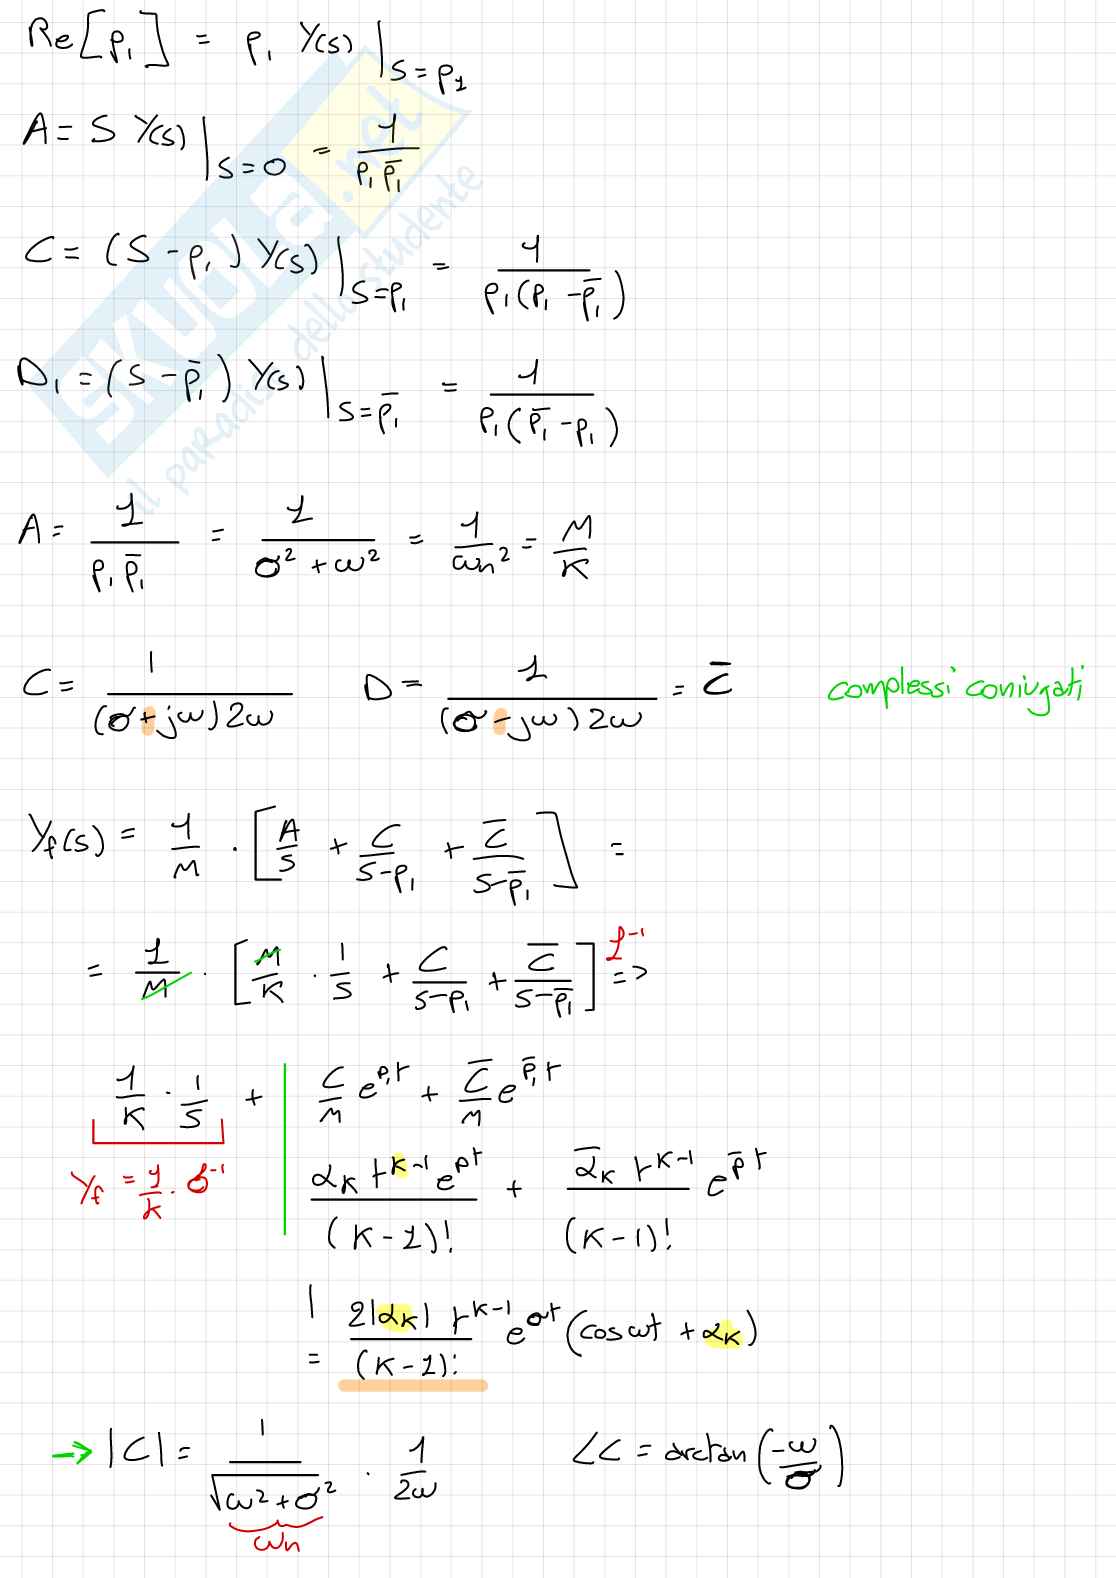 Re[p₁] = p₁ Y(s) |s=p₁
A = S Y(s) |s=0 = 1/(p₁ p̄₁)
C = (S - p₁) Y(s) |s=p₁ = 1/(p₁(p₁ - p̄₁))
D₁ = (S - p̄₁) Y(s) |s=p̄₁ = 1/(p₁(p̄₁ - p₁))
A = 1/(p₁ p̄₁) = 1/(σ² + ω²) = 1/ωn² = M/K
C = 1/((σ + jω) 2ω) D = 1/((σ - jω) 2ω) = C̄ complessi coniugati
Yf(s) = 1/M · [A/S + C/(S-p₁) + C̄/(S-p̄₁)] =
= 1/M · [M/K · 1/S + C/(S-p₁) + C̄/(S-p̄₁)] ℒ⁻¹ =>
1/K · 1/S + | C/M e^(p₁t) + C̄/M e^(p̄₁t)
Yf = 1/k · δ⁻¹ | (α_K t^(K-1) e^(pt))/(K-1)! + (ᾱ_K t^(K-1))/(K-1)! e^(p̄t)
= (2|α_K| t^(K-1))/(K-1)! e^(σt) (cos ωt + α_K)
→ |C| = 1/√(ω² + σ²) · 1/(2ω) ∠C = arctan(-ω/σ)
ωn
SKUOLA.net
il paradiso dello studente